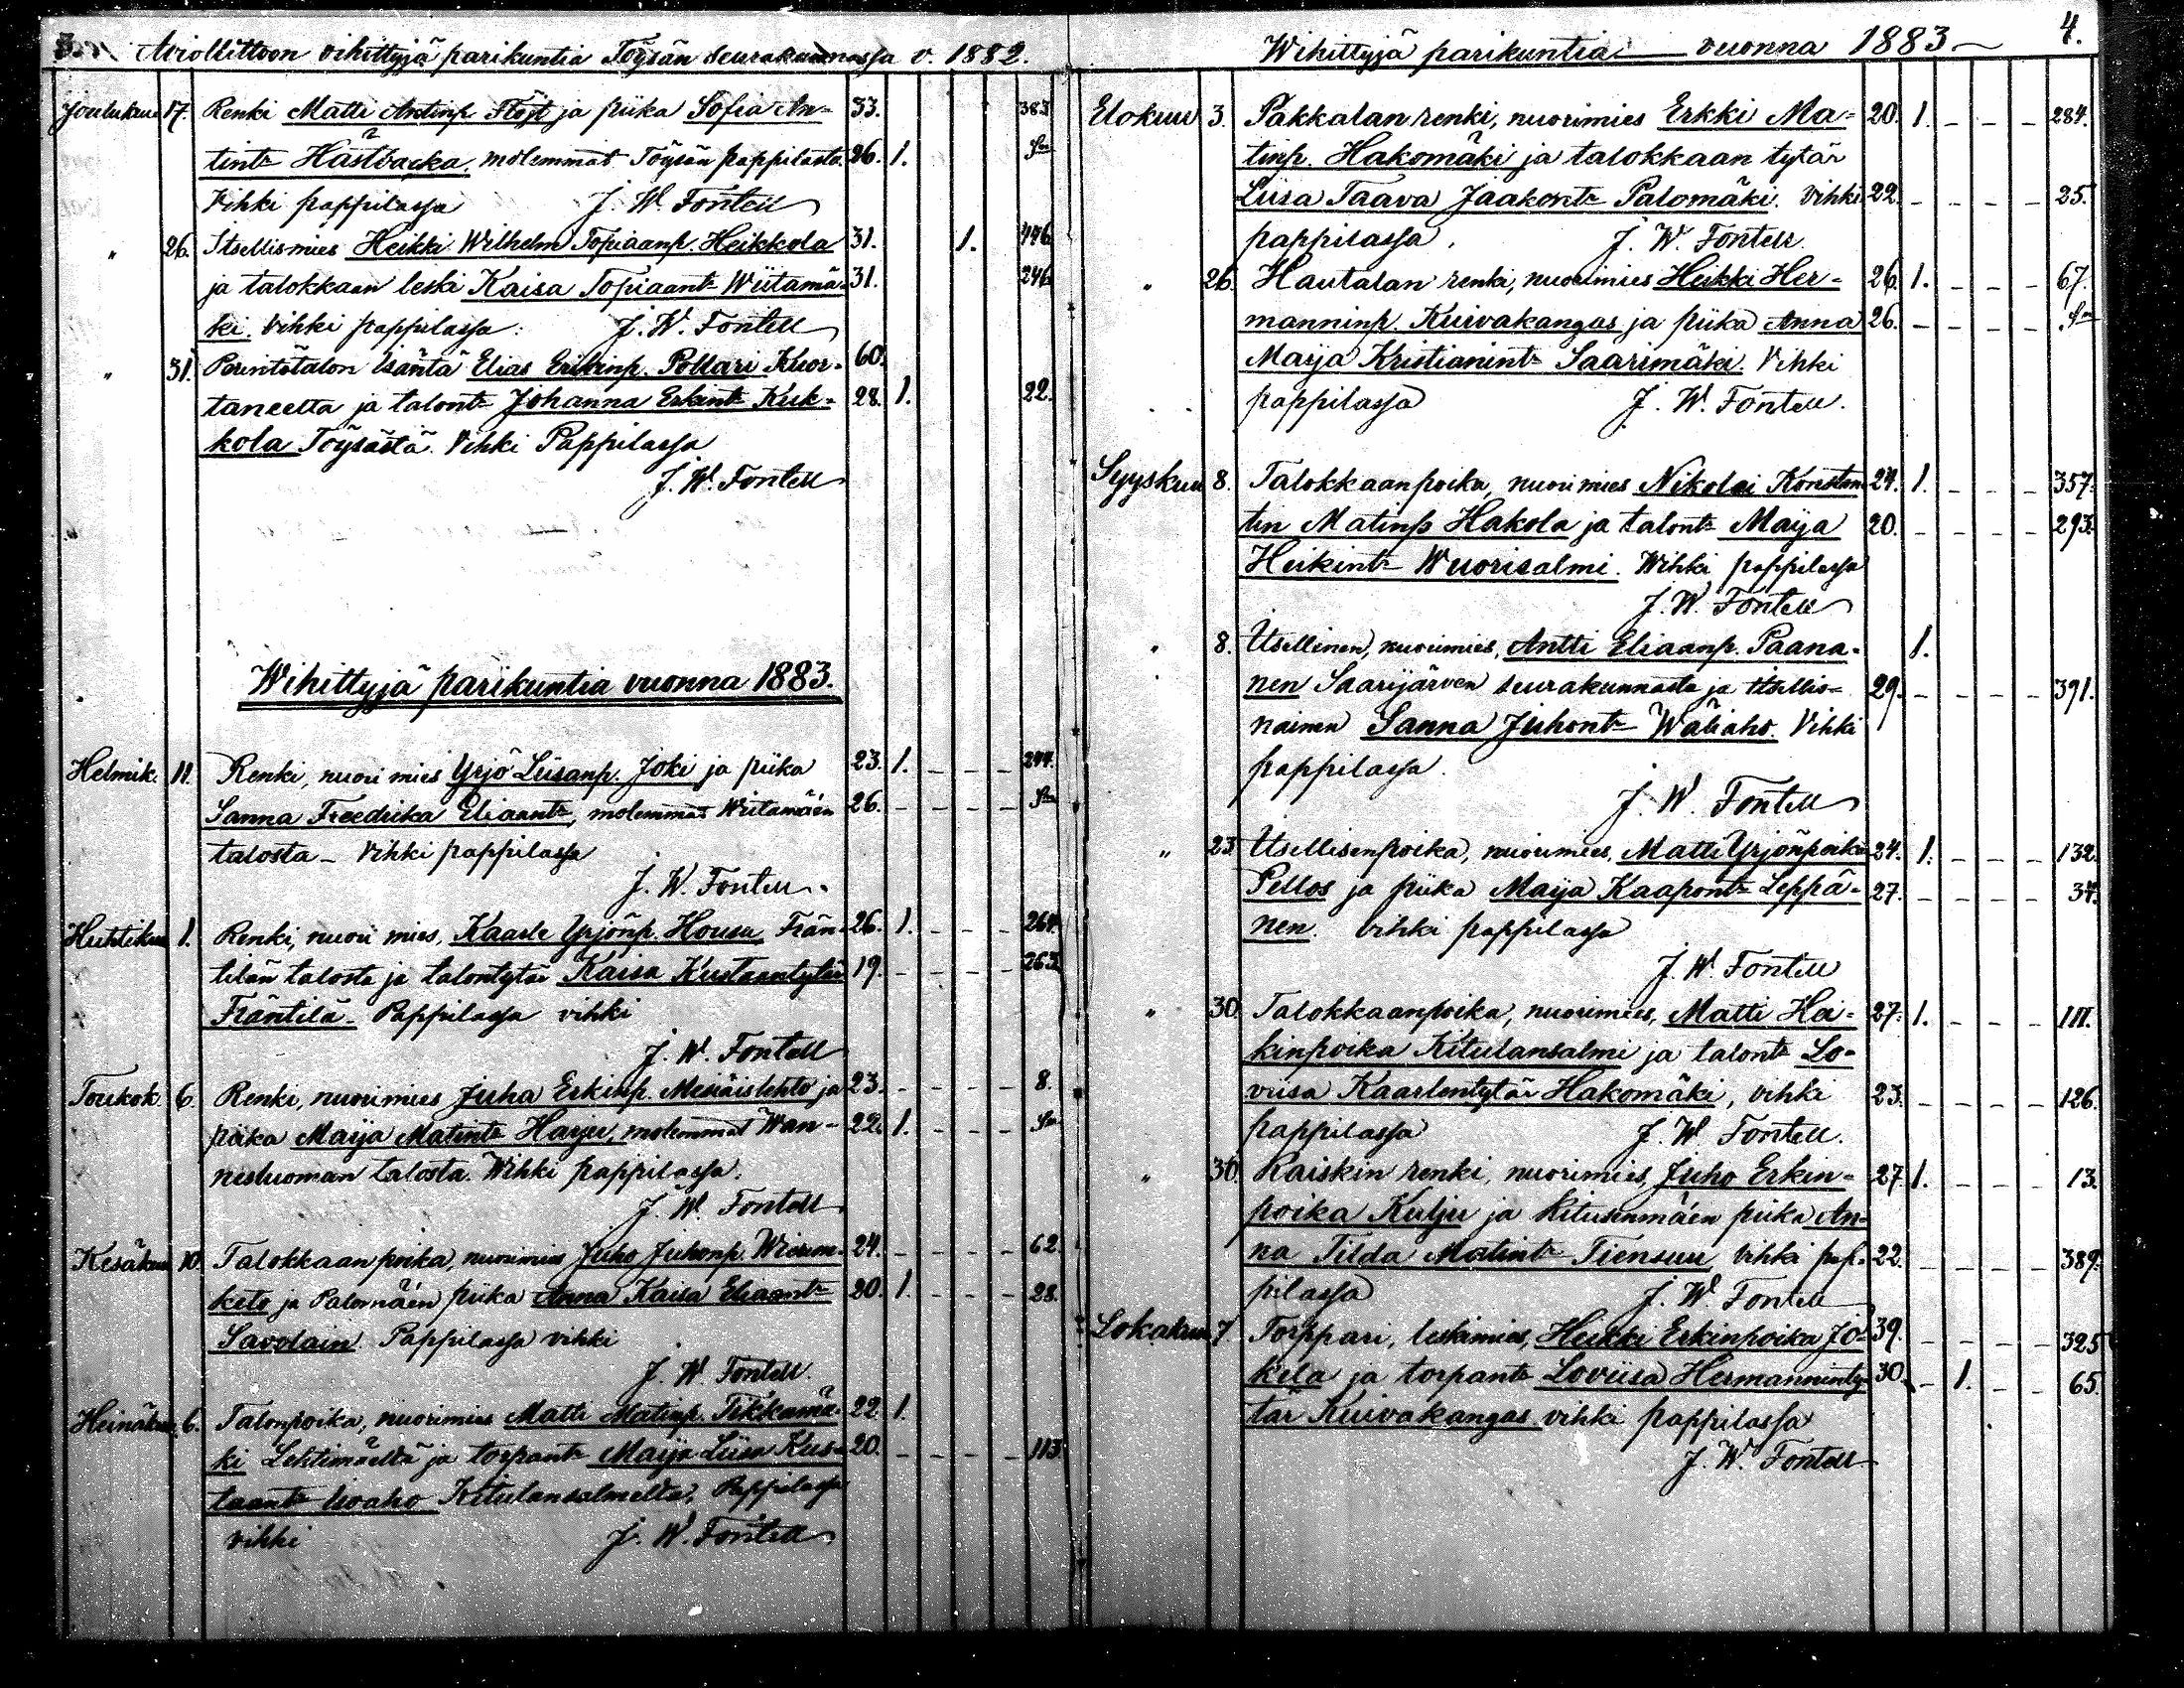 3. Aviollittoon vihittyjä parikuntia Töysän seurakunnassa v. 1882.
Joulukuu 17. Renki Matti Antinp. Flöjt ja piika Sofia An- 33. 383
tint:r Hästbacka, molemmat Töysän pappilasta. 26. 1. S:n
Vihki pappilassa J. W. Fontell
" 26. Itsellismies Heikki Wilhelm Topiaanp. Heikkola 31. 1. 446
ja talokkaan leski Kaisa Topiaant:r Wiitamä- 31. 246
ki. Vihki pappilassa. J. W. Fontell
" 31. Perintötalon isäntä Elias Erikinp. Pollari Kuor- 60.
taneelta ja talont:r Johanna Erkint:r Kuk- 28. 1. 22.
kola Töysästä. Vihki Pappilassa
J. W. Fontell
Wihittyjä parikuntia vuonna 1883.
Helmik. 11. Renki, nuori mies Yrjö Liisanp. Joki ja piika 23. 1. - - - 244.
Sanna Freedrika Eliaant:r, molemmat Wiitamäen 26. - - - - S:n
talosta - Vihki pappilassa
J. W. Fontell
Huhtikuu 1. Renki, nuori mies, Kaarle Yrjönp. Housu Frän- 26. 1. - - - 264.
tilän talosta ja talontytär Kaisa Kustaantytär 19. - - - - 263.
Fräntilä - Pappilassa vihki
J. W. Fontell
Toukok. 6. Renki, nuorimies Juha Erkinp. Mesiäislehto ja 23. - - - - 8.
piika Maija Matint:r Harju, molemmat Wan- 22. 1. - - - S:n
nesluoman talosta. Wihki pappilassa.
J. W. Fontell
Kesäkuu 10. Talokkaan poika, nuorimies Juho Juhonp. Wierum- 24. - - - - 62.
keto ja Palomäen piika Anna Kaisa Eliaant:r 20. 1. - - - 28.
Savolain. Pappilassa vihki
J. W. Fontell.
Heinäkuu 6. Talonpoika, nuorimies Matti Matinp. Tikkamä- 22. 1.
ki Lehtimäeltä ja torpant:r Maija Liisa Kus- 20. - - - - 113.
taant:r Isoaho Kitulansalmelta, Pappilassa
vihki J. W. Fontell
Wihittyjä parikuntia vuonna 1883 4.
Elokuu 3. Pakkalan renki, nuorimies Erkki Ma- 20. 1. - - - 284.
tinp. Hakomäki ja talokkaan tytär
Liisa Taava Jaakont:r Palomäki. Vihki 22. - - - - 25.
pappilassa. J. W. Fontell.
" 26. Hautalan renki, nuorimies Heikki Her- 26. 1. - - - 67.
manninp. Kuivakangas ja piika Anna 26. - - - - S:n
Maija Kristianint:r Saarimäki. Vihki
pappilassa J. W. Fontell.
Syyskuu 8. Talokkaanpoika, nuorimies Nikolai Konstan- 24. 1. - - - 357.
tin Matinp Hakola ja talont:r Maija 20. - - - - 293.
Heikint:r Wuorisalmi. Wihki pappilassa
J. W. Fontell
" 8. Itsellinen, nuorimies, Antti Eliaanp. Paana- 1.
nen Saarijärven seurakunnasta ja itsellis- 29. - - - - 391.
nainen Sanna Juhont:r Wäliaho. Vihki
pappilassa.
J. W. Fontell
" 23. Itsellisenpoika, nuorimies, Matti Yrjönpoika 24. 1. - - - 132.
Pellos ja piika Maija Kaapont:r Leppä- 27. - - - - 34.
nen. Vihki pappilassa
J. W. Fontell
" 30. Talokkaanpoika, nuorimies, Matti Hei- 27. 1. - - - 111.
kinpoika Kitulansalmi ja talont:r Lo-
viisa Kaarlentytär Hakomäki, vihki 23. - - - - 126.
pappilassa J. W. Fontell.
" 30. Kaiskin renki, nuorimies, Juho Erkin- 27. 1. - - - 13.
poika Kulju ja Kitusenmäen piika An-
na Tilda Matint:r Tiensuu, Vihki pap- 22. - - - - 389.
pilassa J. W. Fontell
Lokakuu 7. Torppari, leskimies, Heikki Erkinpoika Jo- 39. - - - - 325
kela ja torpant:r Loviisa Hermanninty- 30. - 1. - - 65.
tär Kuivakangas vihki pappilassa
J. W. Fontell